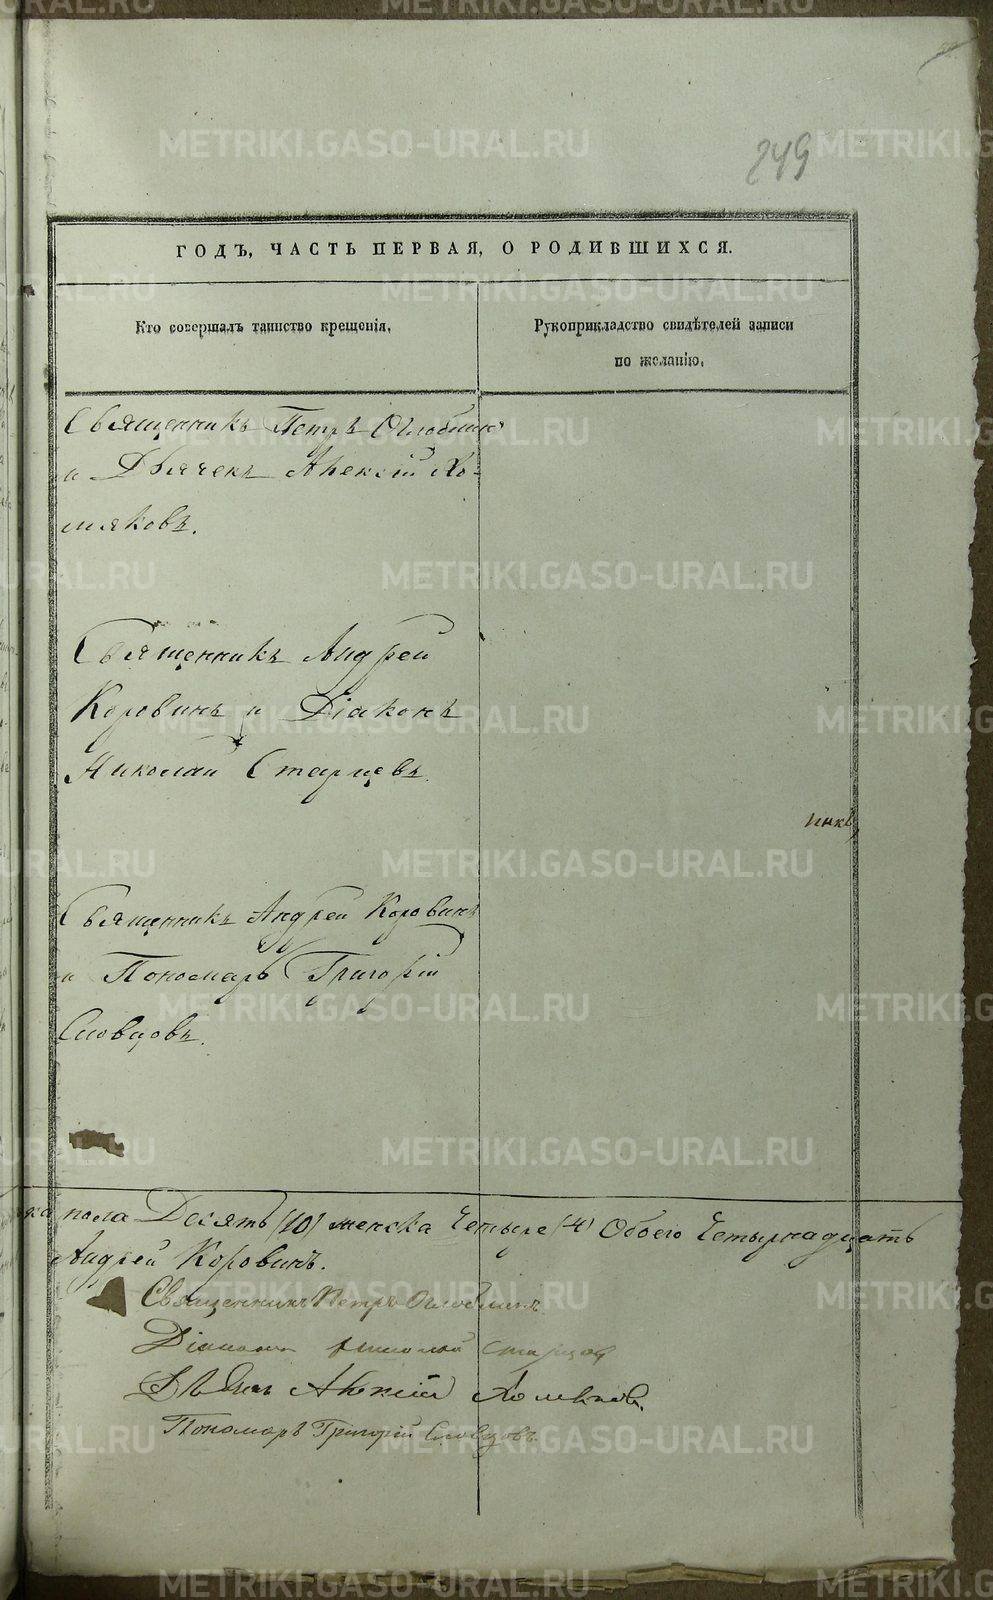 249
ГОДЪ, ЧАСТЬ ПЕРВАЯ, О РОДИВШИХСЯ.
Кто совершалъ таинство крещенія.
Рукоприкладство свидѣтелей записи
по желанію.
Священникъ Петръ Оглоблинъ
и Дьячекъ Алексій Хо-
мяковъ.
Священникъ Андрей
Коровинъ и Діаконъ
Николай Старцевъ.
Священникъ Андрей Коровинъ
и Пономарь Григорій
Словцовъ.
пола Десять (10) женска Четыре (4) Обоего Четырнадцать
Андрей Коровинъ.
Священникъ Петръ Оглоблинъ
Діаконъ Николай Старцовъ
Алексій Хомяковъ.
Пономарь Григорій Словцовъ
METRIKI.GASO-URAL.RU